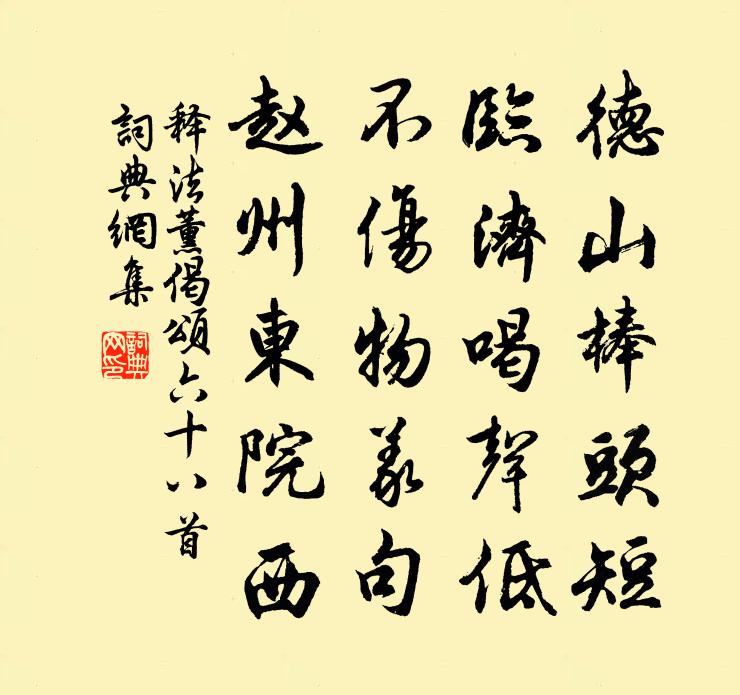 德山棒頭短
臨濟喝聲低
不傷物義句
赵州東院西
释法薰偈頌六十八首
詞典網集
詞典网印